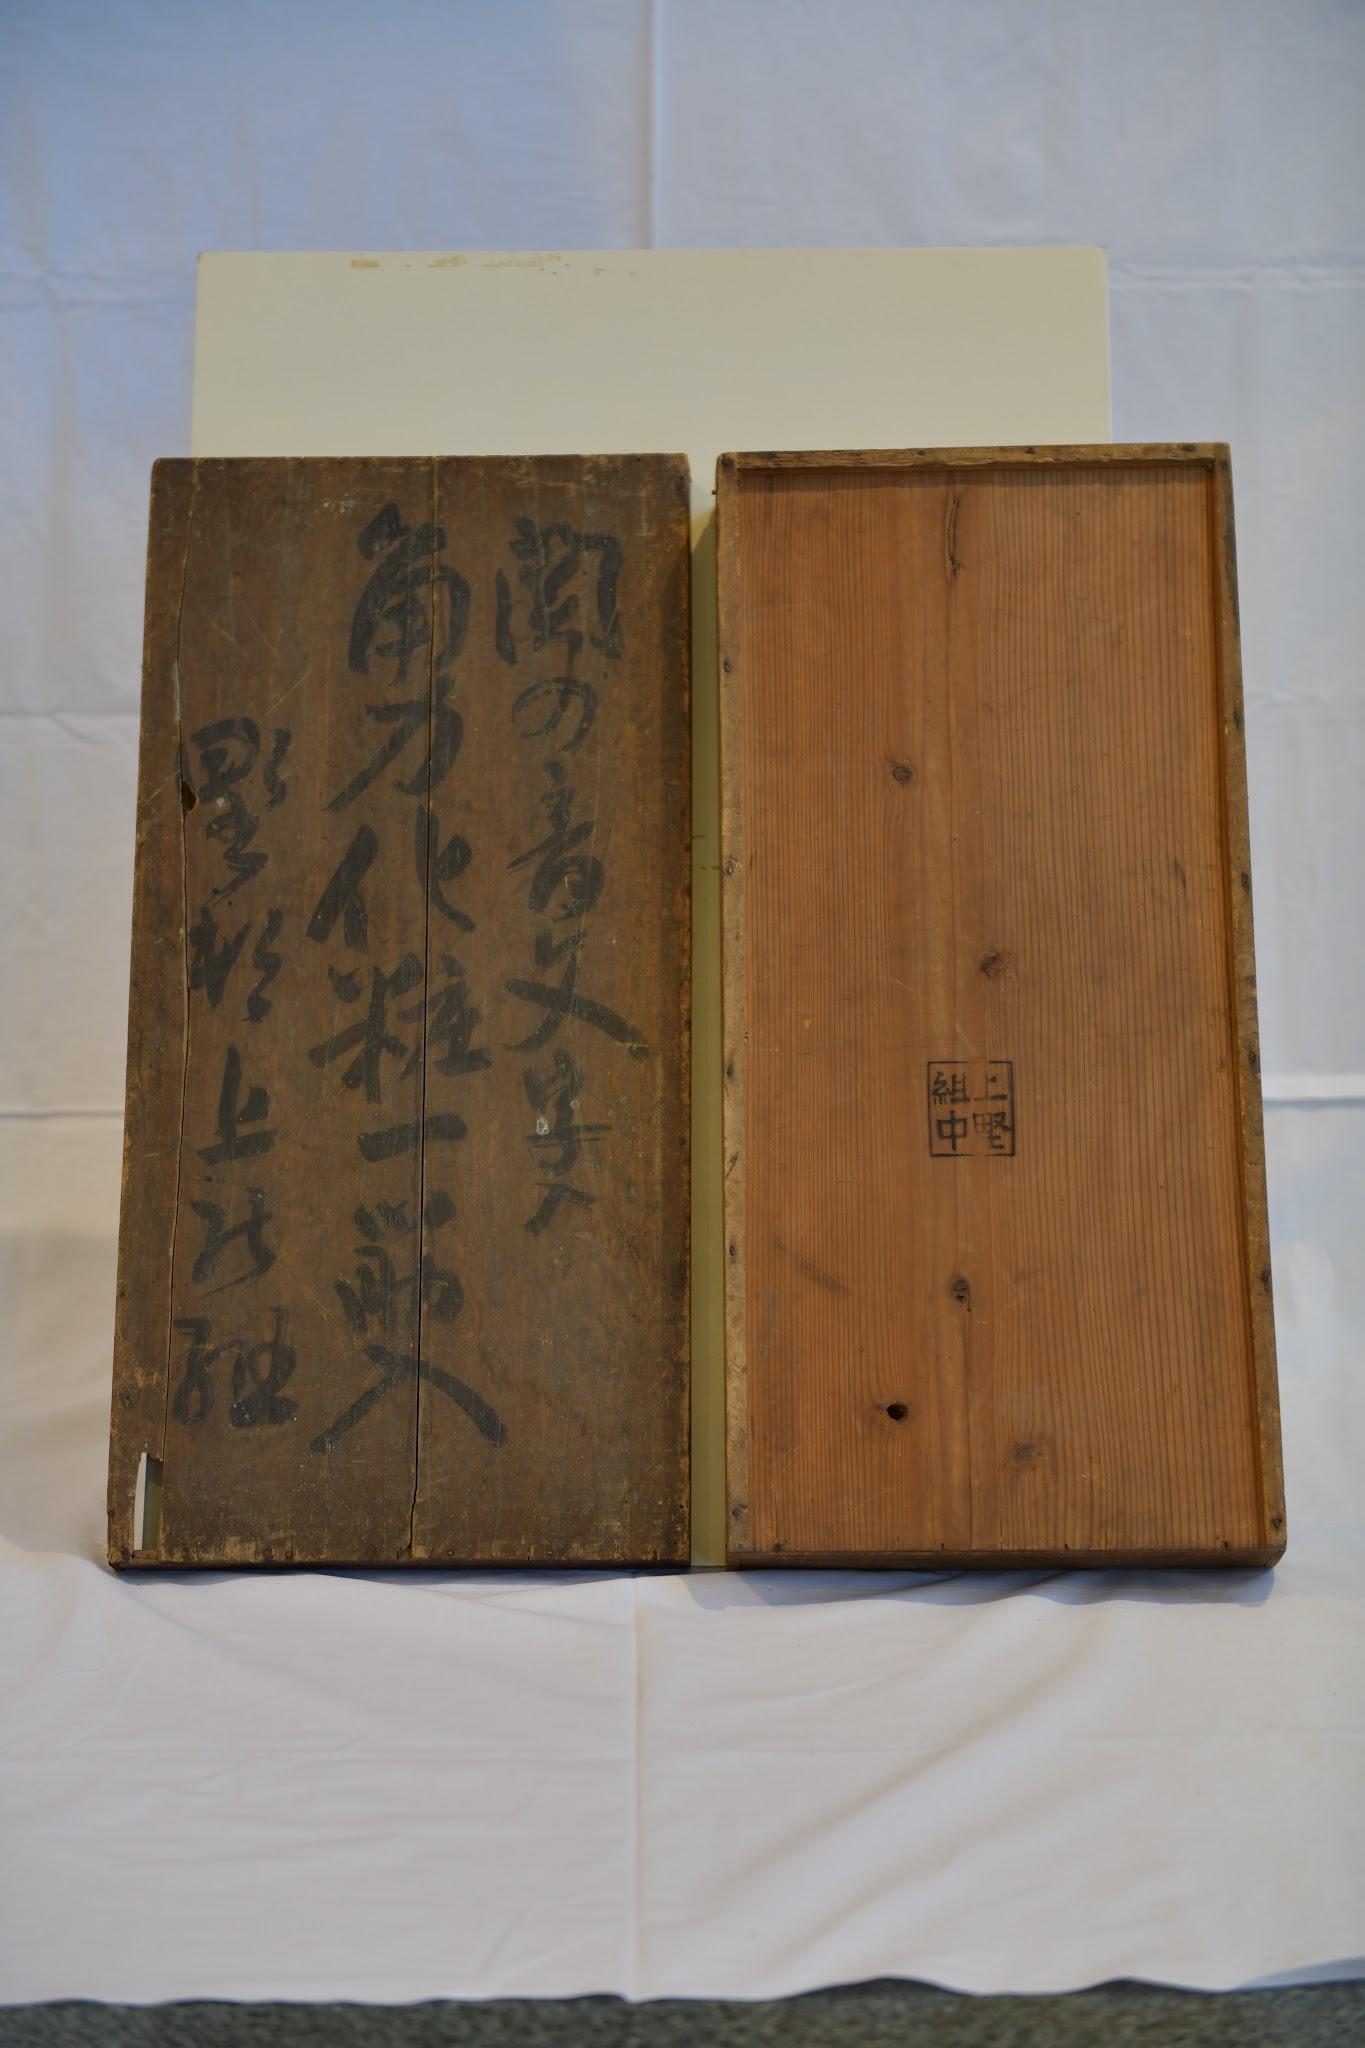 関の音文字入
角力化粧一筋入
野村上の組
上野
組中